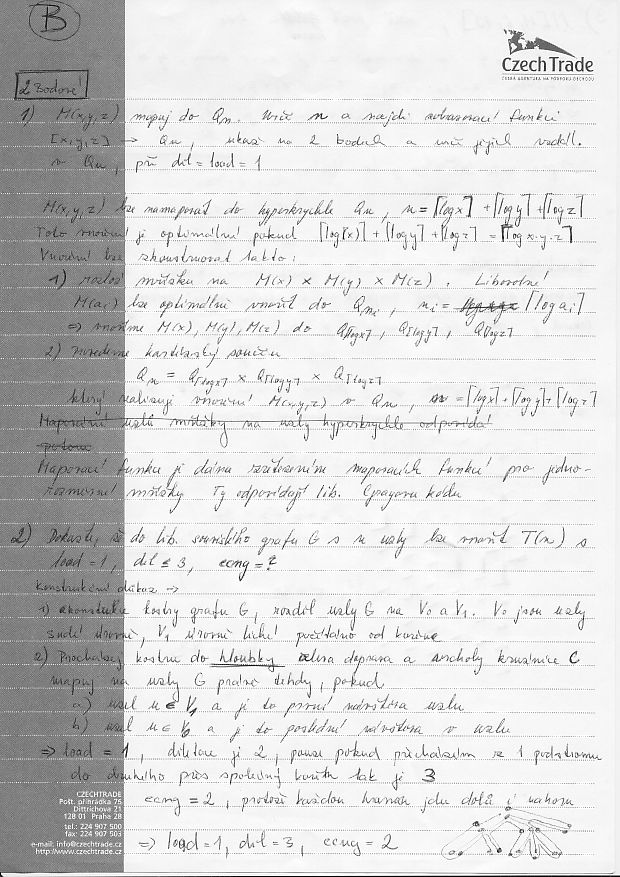 B
CzechTrade
ČESKÁ AGENTURA NA PODPORU OBCHODU
2 bodové!
1) M(x,y,z) mapuj do Qn. Urči n a najdi mapovací funkci
[x,y,z] → Qn, ukaž na 2 bodech a urči jejich vzdál.
v Qn, při dil = load = 1
M(x,y,z) lze namapovat do hyperkrychle Qn, n = ⌈log x⌉ + ⌈log y⌉ + ⌈log z⌉
Toto vnoření je optimální pokud ⌈log(x)⌉ + ⌈log y⌉ + ⌈log z⌉ = ⌈log x·y·z⌉
Vnoření lze zkonstruovat takto:
1) rozlož mřížku na M(x) × M(y) × M(z). Libovolné
M(ai) lze optimálně vnořit do Qni, ni = ⌈log ai⌉
⇒ vnoříme M(x), M(y), M(z) do Q⌈log x⌉, Q⌈log y⌉, Q⌈log z⌉
2) provedeme kartézský součin
Qn = Q⌈log x⌉ × Q⌈log y⌉ × Q⌈log z⌉
který realizuje vnoření M(x,y,z) v Qn, n = ⌈log x⌉ + ⌈log y⌉ + ⌈log z⌉
Mapování uzlů mřížky na uzly hyperkrychle odpovídá
Mapovací funkce je dána zřetězením mapovacích funkcí pro jedno-
rozměrné mřížky Ty odpovídají lib. Grayovu kódu
2) Dokažte, že do lib. souvislého grafu G s n uzly lze vnořit T(n) s
load = 1, dil ≤ 3, ecng = ?
Konstrukční důkaz →
1) zkonstruujte kostry grafu G, rozděl uzly G na V0 a V1. V0 jsou uzly
sudé úrovně, V1 úrovně liché počítáno od kořene
2) Procházej kostru do hloubky zleva doprava a vrcholy kružnice C
mapuj na uzly G právě tehdy, pokud
a) uzel u ∈ V1 a je to první návštěva uzlu
b) uzel u ∈ V0 a je to poslední návštěva v uzlu
⇒ load = 1, dilatace je 2, pouze pokud přecházím ze 1 podstromu
do druhého přes společný kořen tak je 3
ecng = 2, protože každou hranou jdu dolů i nahoru
⇒ load = 1, dil = 3, ecng = 2
CZECHTRADE
Pošt. přihrádka 75
Dittrichova 21
128 01 Praha 28
tel.: 224 907 500
fax: 224 907 503
e-mail: info@czechtrade.cz
http://www.czechtrade.cz